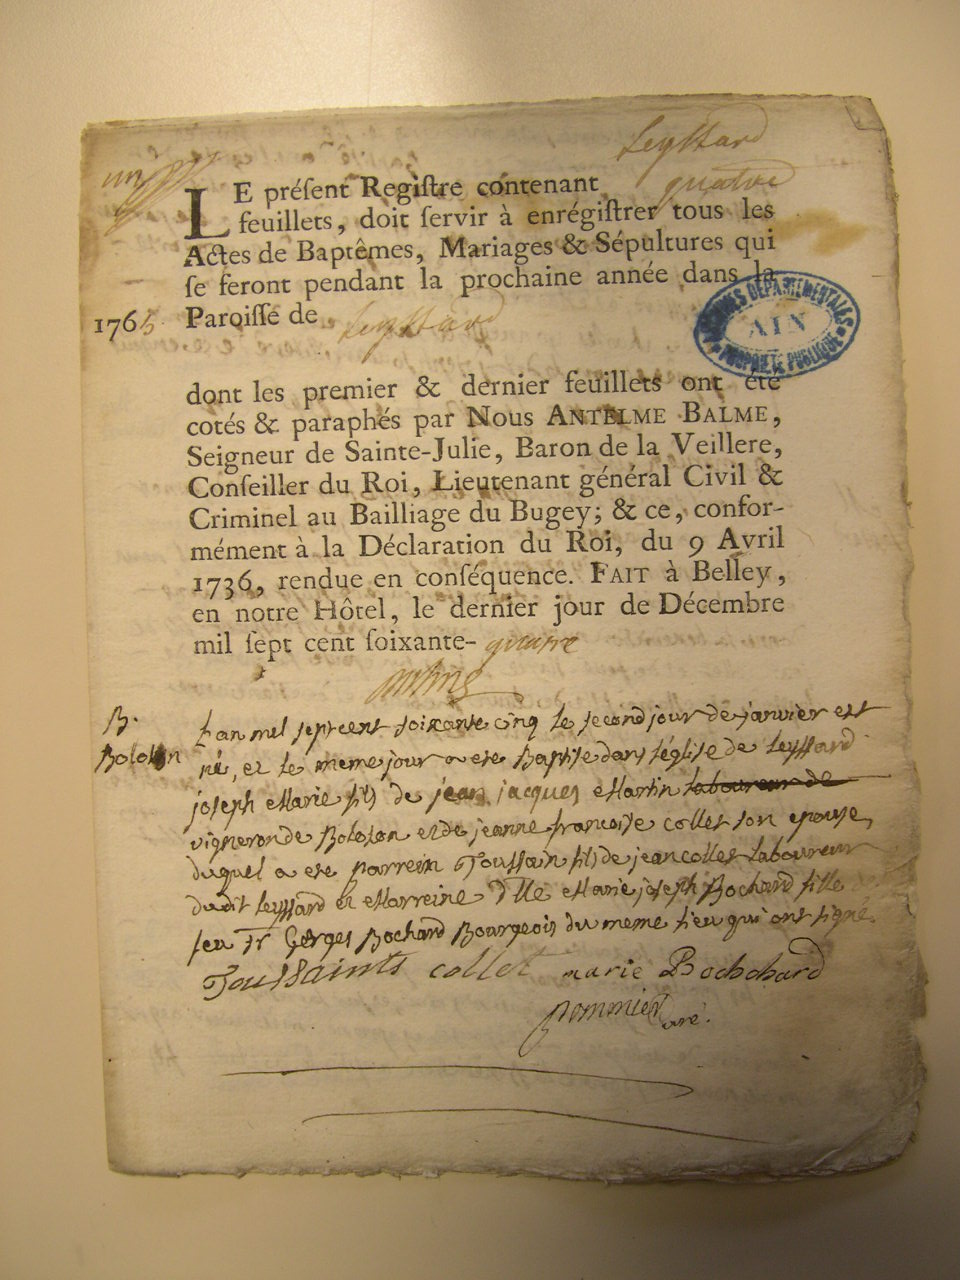 Leyssard
un
LE présent Registre contenant quatre
feuillets, doit servir à enrégistrer tous les
Actes de Baptêmes, Mariages & Sépultures qui
se feront pendant la prochaine année dans la
1765 Paroisse de Leyssard
ARCHIVES DÉPARTEMENTALES
AIN
PROPRIÉTÉ PUBLIQUE
dont les premier & dernier feuillets ont été
cotés & paraphés par Nous ANTELME BALME,
Seigneur de Sainte-Julie, Baron de la Veillere,
Conseiller du Roi, Lieutenant général Civil &
Criminel au Bailliage du Bugey; & ce, confor-
mément à la Déclaration du Roi, du 9 Avril
1736, rendue en conséquence. FAIT à Belley,
en notre Hôtel, le dernier jour de Décembre
mil sept cent soixante-quatre
B.
Bolozon
L'an mil sept cent soixante cinq le second jour de janvier est
né, et le meme jour a ete Baptise dans l'église de Leyssard
joseph Marie fils de jean jacques Martin laboureur de
vigneron de Bolozon et de jeanne francoise collet son epouse,
duquel a ete parrein Toussain fils de jean collet laboureur
dudit Leyssard et Marreine dlle Marie joseph Bochard fille de
feu Sr Georges Bochard Bourgeois du meme lieu qui ont signé.
Toussaints collet marie Bochchard
pommier curé.